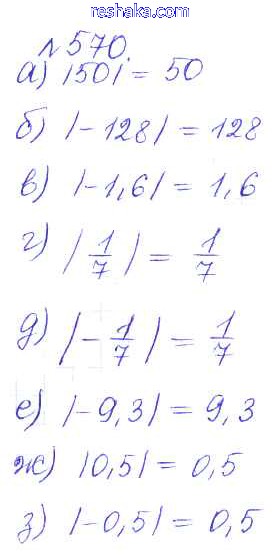 www.reshaka.com
№570.
а) |50| = 50
б) |-128| = 128
в) |-1,6| = 1,6
г) |1/7| = 1/7
д) |-1/7| = 1/7
е) |-9,3| = 9,3
ж) |0,5| = 0,5
з) |-0,5| = 0,5